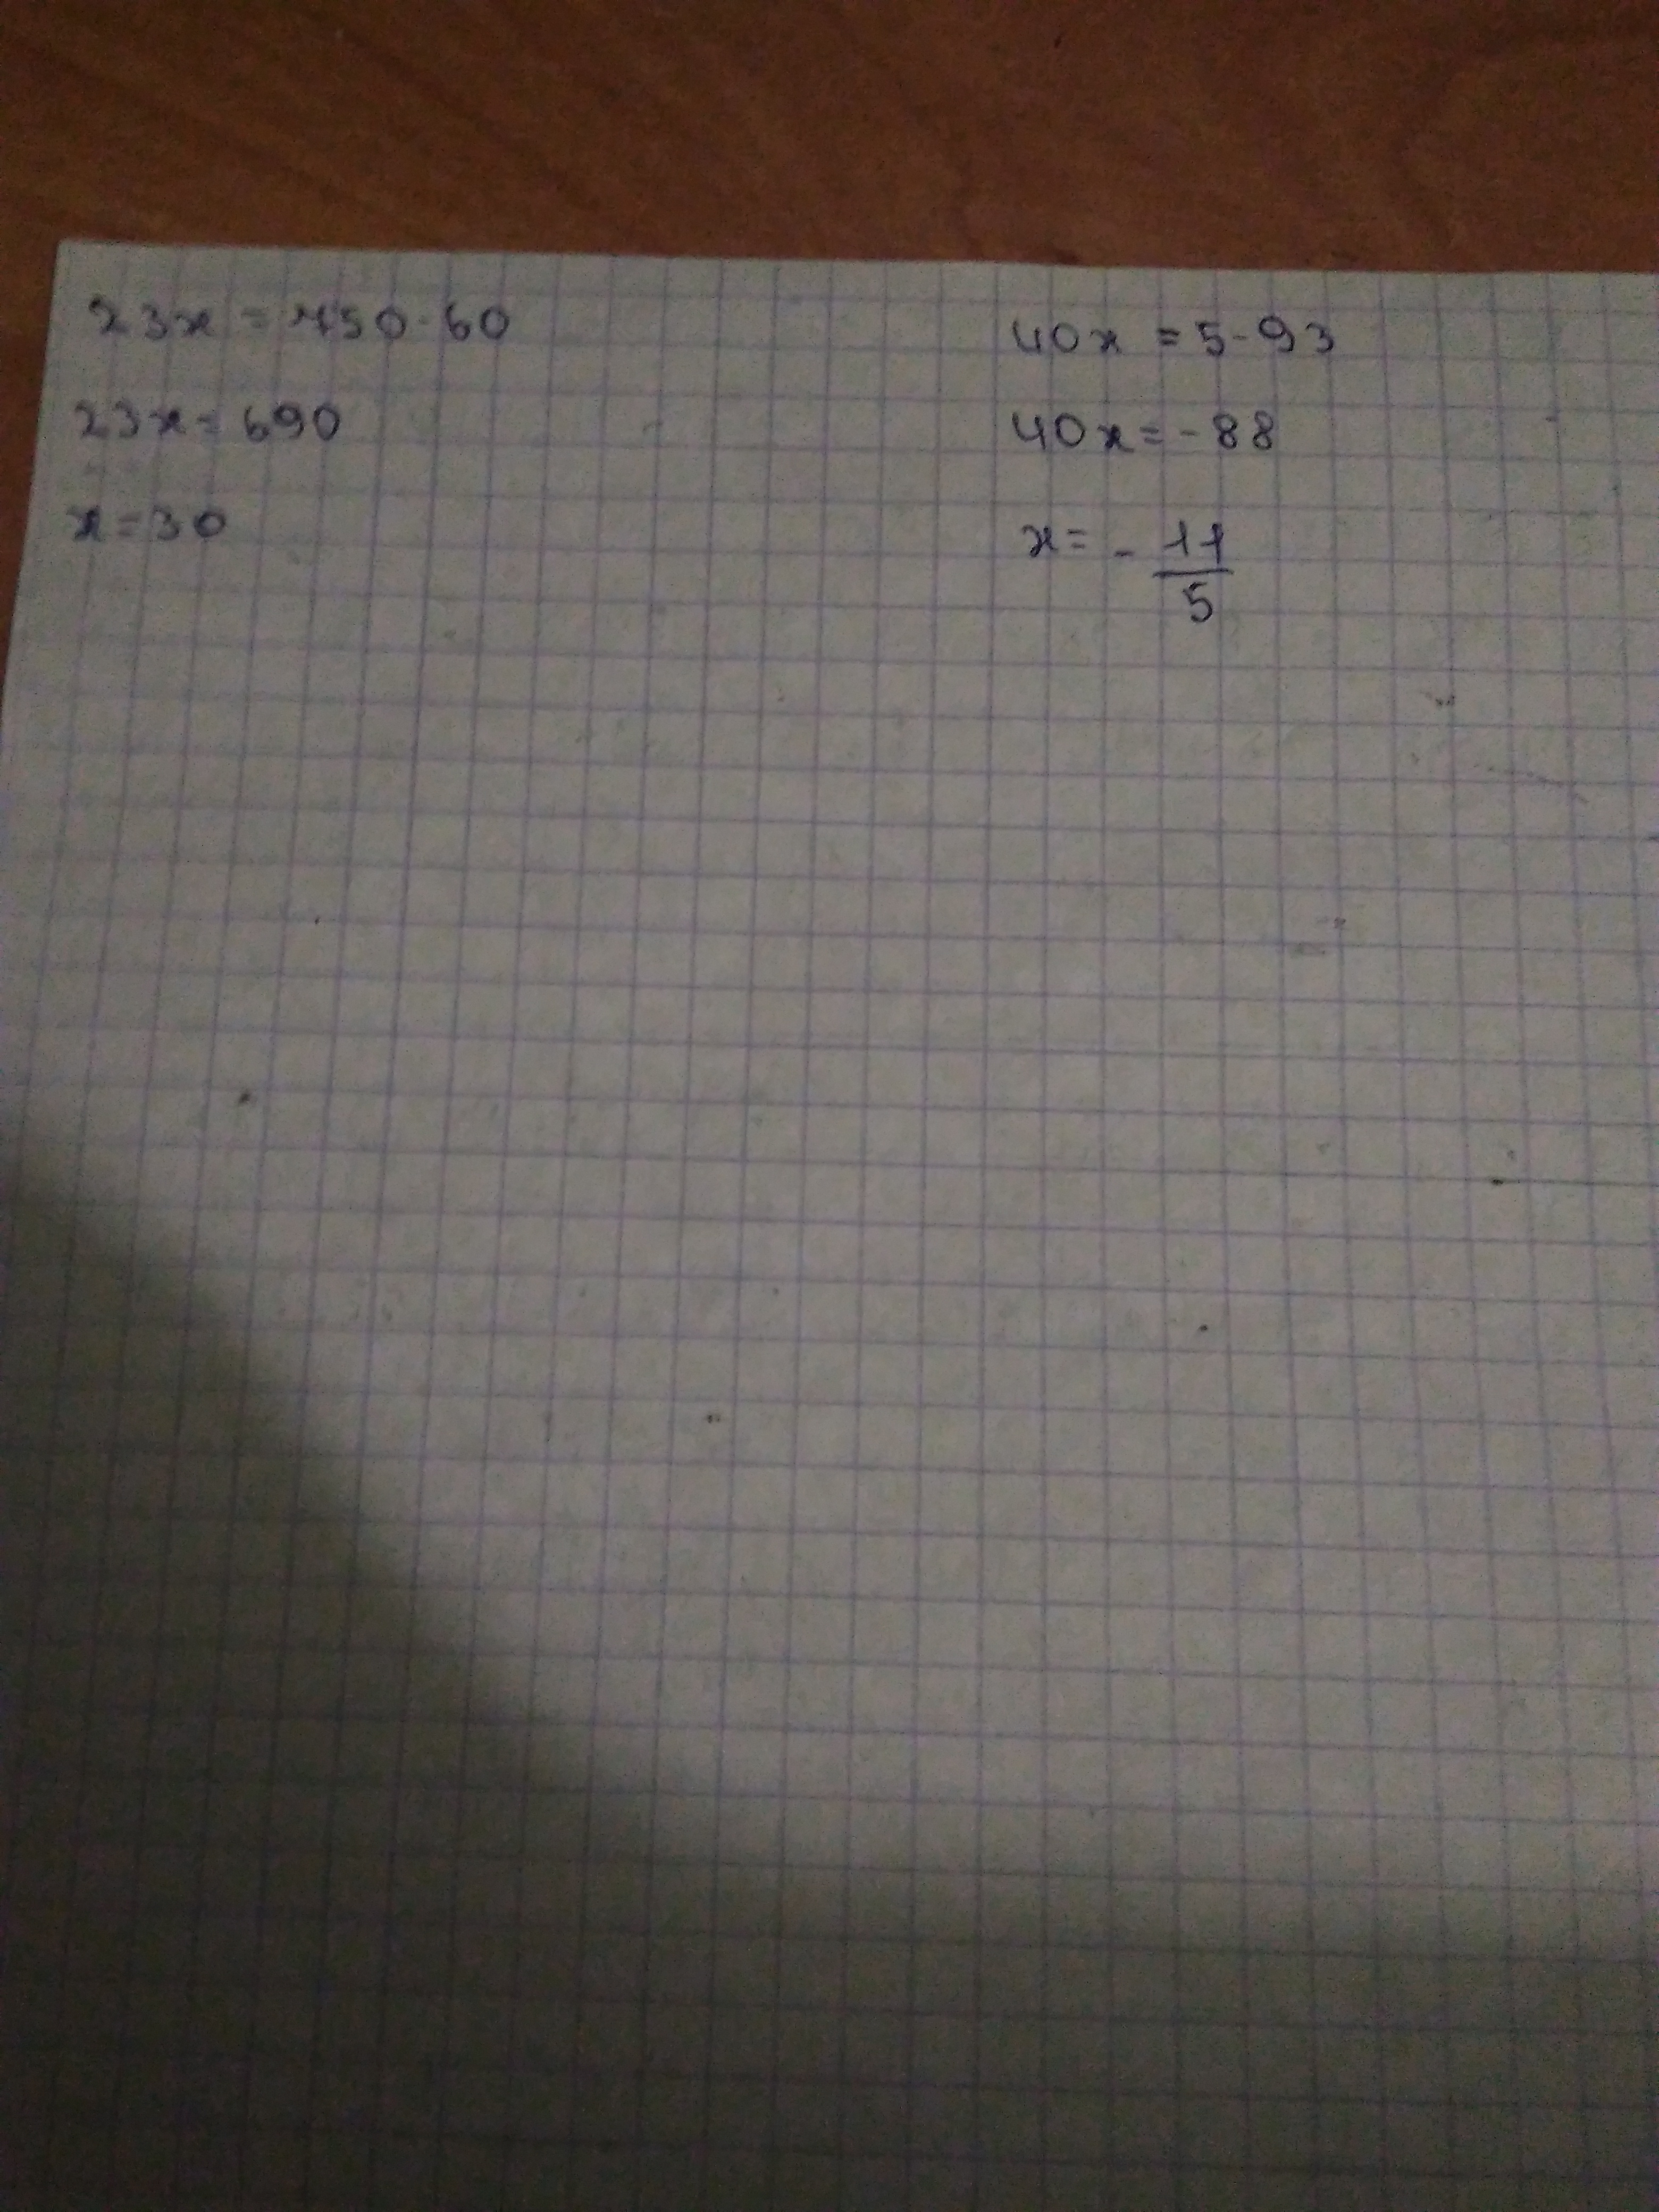 23x = 750-60
23x = 690
x = 30
40x = 5-93
40x = -88
x = - 11/5